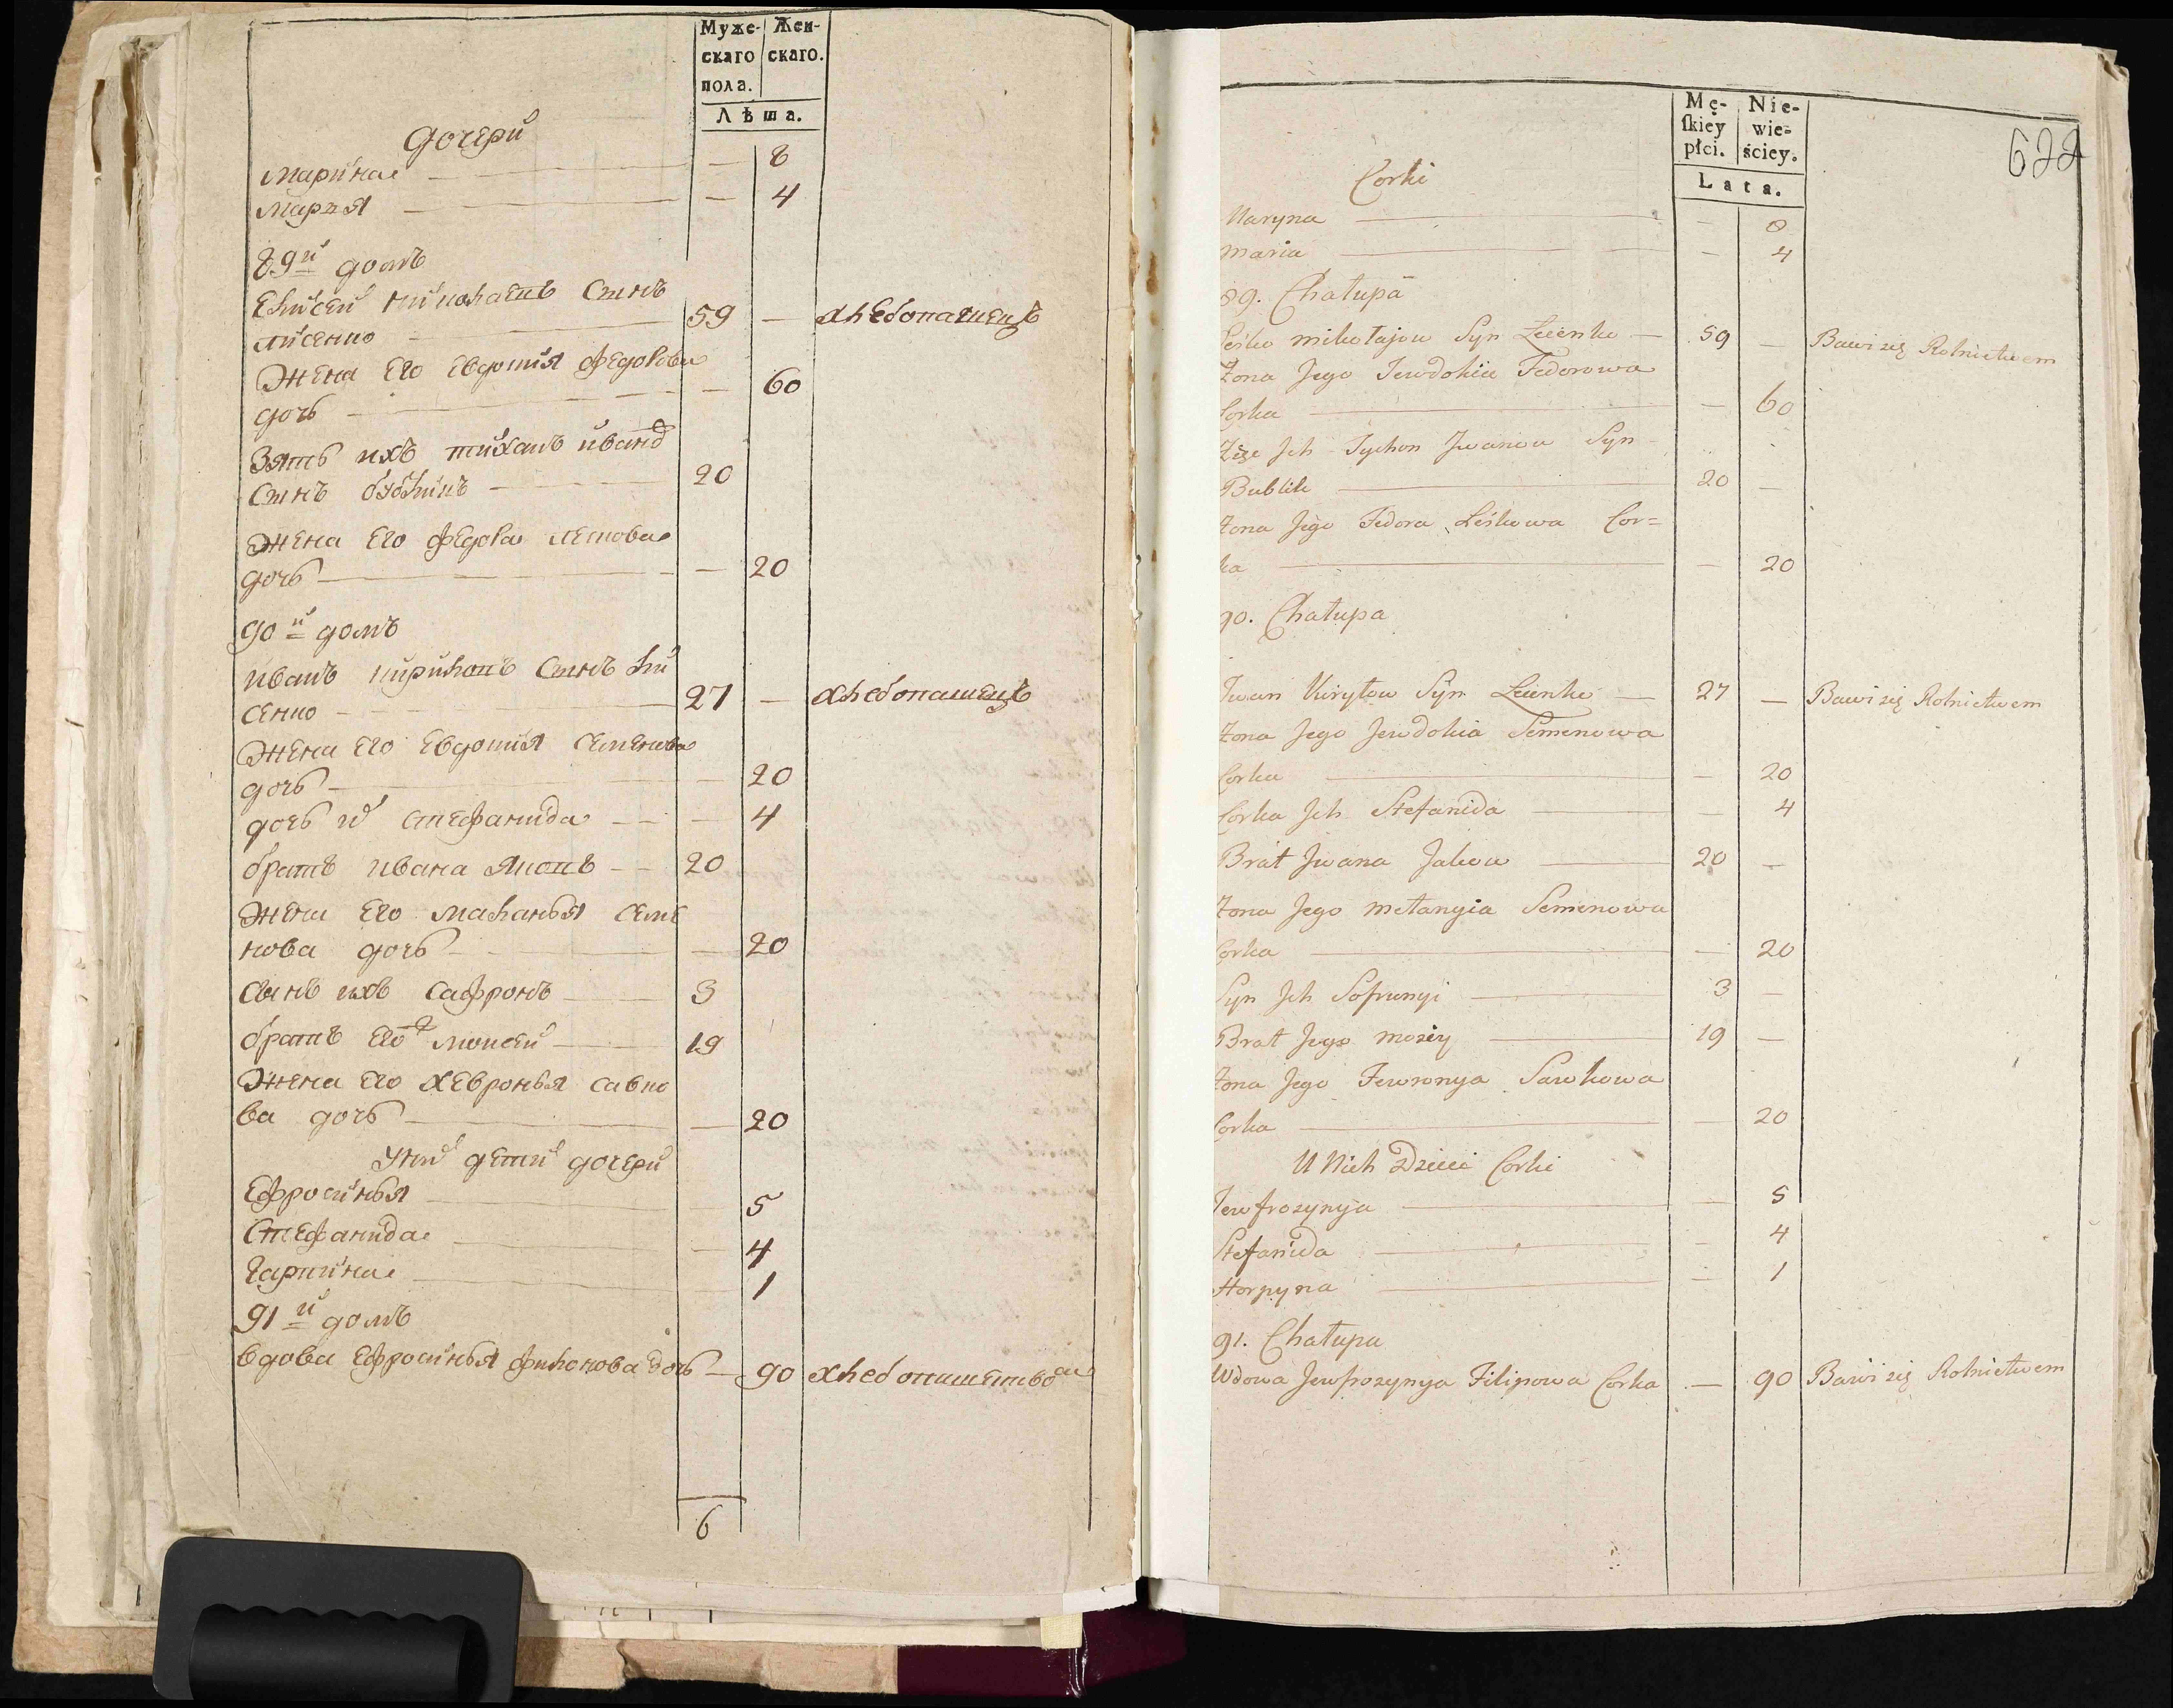 Муже-
скаго
пола.
Жен-
скаго.
Лѣта.
дочери
Марина — — 8
Марья — — 4
89й домъ
Елисей Николаевъ сынъ
Лисенко — 59 — хлебопашецъ
Жена его Евдотия Федорова
дочь — — 60
Зять ихъ Тиханъ Иванов
сынъ Бубликъ — 20
Жена его Федора
дочь — — 20
90й домъ
Иванъ Кириловъ сынъ Ли
сенко — 27 — хлебопашецъ
Жена его Евдотия Семенова
дочь — — 20
дочь их Стефанида — — 4
братъ Ивана Яковъ — 20
Жена его Маланья Семе
нова дочь — — 20
Сынъ ихъ Сафронъ — 3
братъ его Моисей — 19
Жена его Хевронья Савко
ва дочь — — 20
У них дети дочери
Ефросинья — — 5
Стефанида — — 4
Гарпина — — 1
91й домъ
вдова Ефросинья дочь — 90
6
Mę-
skiey
płci.
Nie-
wie-
ściey.
Lata.
622
Corki
Maryna — — 8
Maria — — 4
89. Chałupa
Leśko Mikołajow Syn Lisienko — 59 — Bawi się Rolnictwem
Żona Jego Jewdokia Fedorowa
Corka — — 60
Zięc Jch Tychon Jwanow Syn
Bublik — 20 —
Żona Jego Fedora Leśkowa Cor=
ka — — 20
90. Chałupa
Jwan Kiryłow Syn Lisienko — 27 — Bawi się Rolnictwem
Żona Jego Jewdokia Semenowa
Corka — — 20
Corka Jch Stefanida — — 4
Brat Jwana Jakow — 20 —
Żona Jego Mełangia Semenowa
Corka — — 20
Syn Jch Sofronyi — 3 —
Brat Jego Mosiey — 19 —
Żona Jego Fewronya Sawkowa
Corka — — 20
U Nich Dzieci Corki
Jewfrozynya — — 5
Stefanida — — 4
Horpyna — — 1
91. Chałupa
Wdowa Jewfrozynya Filipowa Corka — 90 Bawi się Rolnictwem